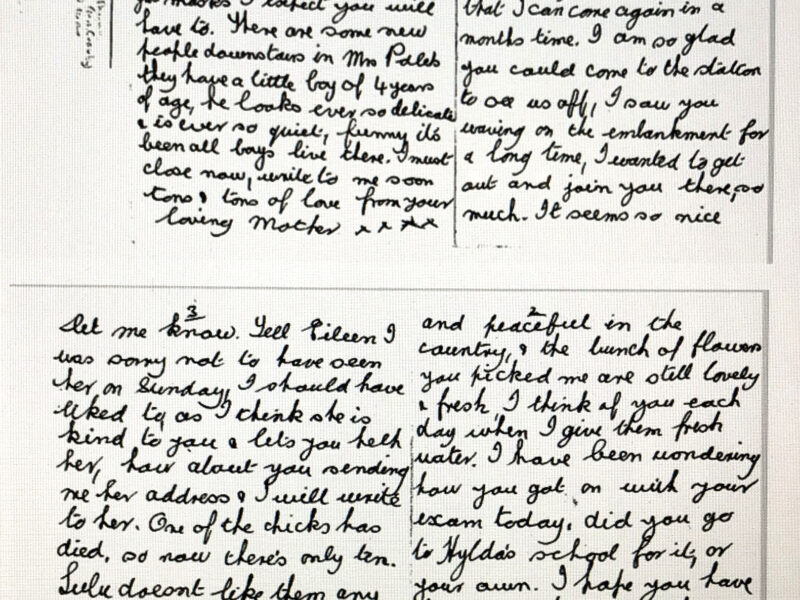 masks I expect you will
have to. There are some new
people downstairs in Mrs
they have a little boy of 4 years
of age, he looks ever so delicate
& is ever so quiet, funny its
been all boys live there. I must
close now, write to me soon
tons & tons of love from your
loving Mother x x x x
that I can come again in a
months time. I am so glad
you could come to the station
to see us off, I saw you
waving on the embankment for
a long time, I wanted to get
out and join you there, so
much. It seems so nice
3
let me know. Tell Eileen I
was sorry not to have seen
her on Sunday, I should have
liked to, as I think she is
kind to you & lets you help
her, how about you sending
me her address & I will write
to her. One of the chicks has
died, so now there's only ten.
Lulu doesnt like them any
2
and peaceful in the
country, & the bunch of flowers
you picked me are still lovely
& fresh, I think of you each
day when I give them fresh
water. I have been wondering
how you got on with your
exam today, did you go
to Hylda's school for it, or
your own. I hope you have